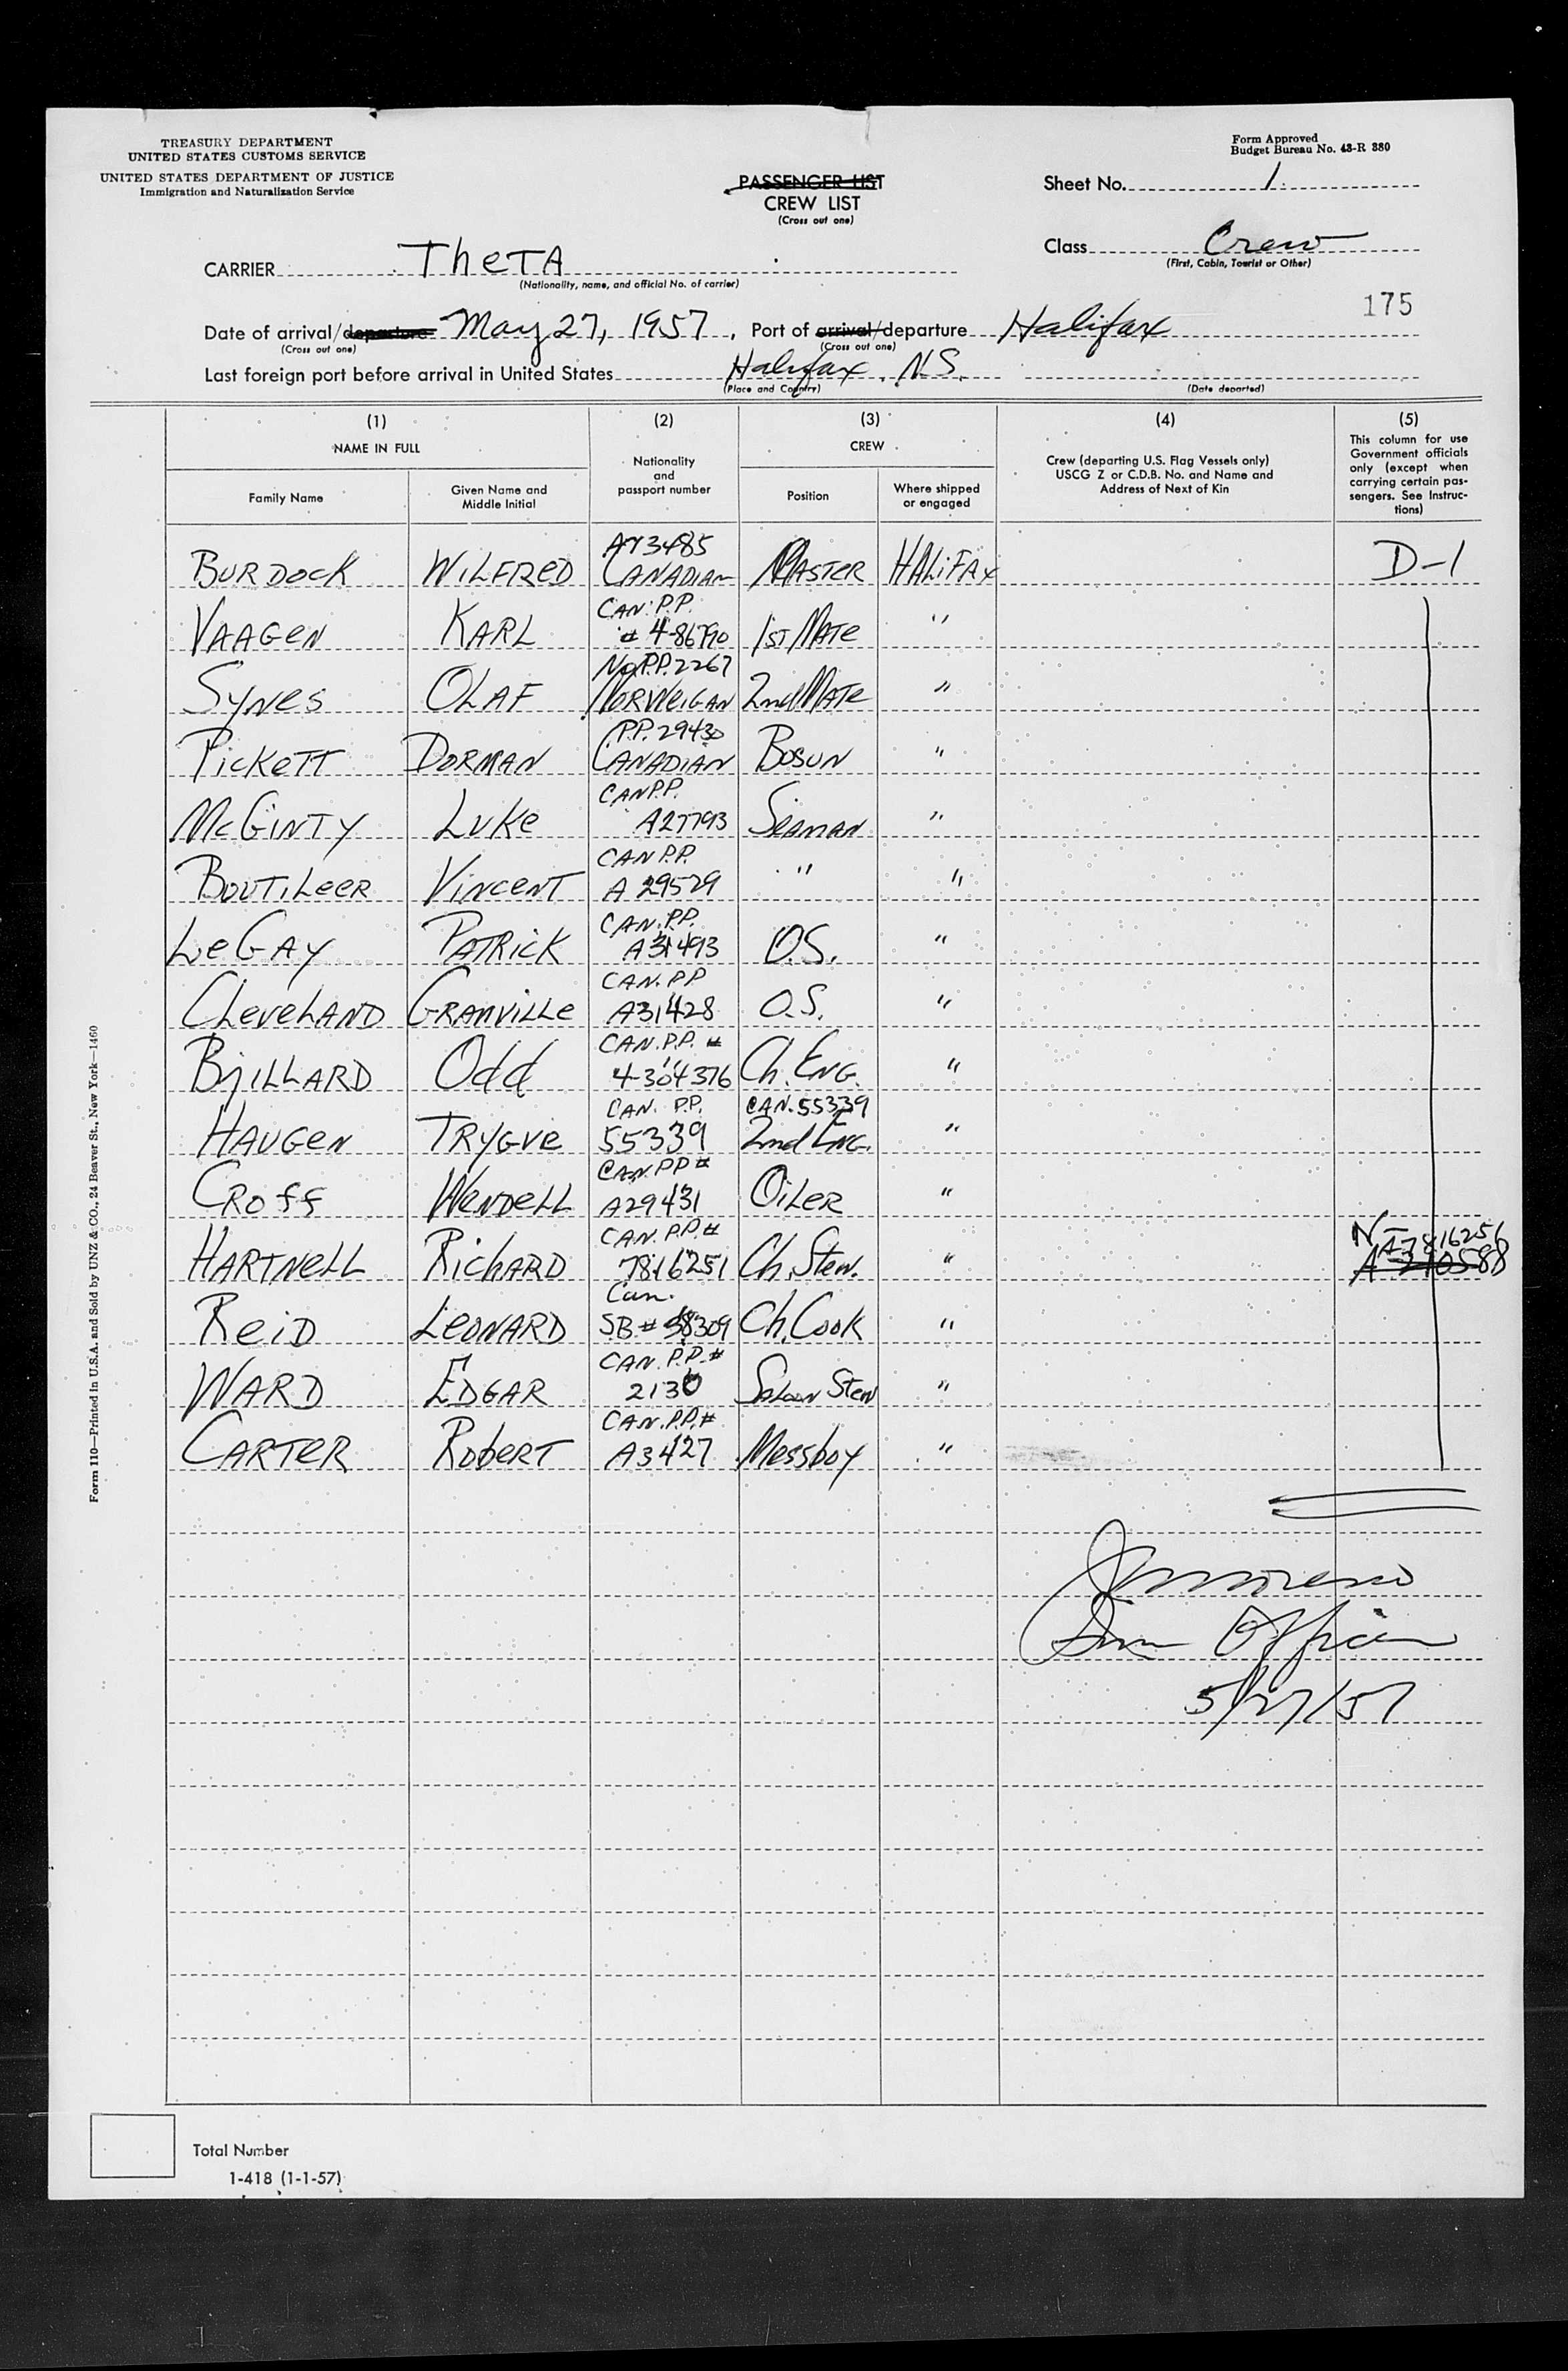 TREASURY DEPARTMENT
UNITED STATES CUSTOMS SERVICE
UNITED STATES DEPARTMENT OF JUSTICE
Immigration and Naturalization Service
Form Approved
Budget Bureau No. 43-R 380
PASSENGER LIST
CREW LIST
(Cross out one)
Sheet No. 1.
Class Crew
(First, Cabin, Tourist or Other)
CARRIER TheTA
(Nationality, name, and official No. of carrier)
175
Date of arrival/departure May 27, 1957, Port of arrival/departure Halifax
(Cross out one) (Cross out one)
Last foreign port before arrival in United States Halifax, N.S.
(Place and Country) (Date departed)
(1) (2) (3) (4) (5)
NAME IN FULL
Family Name
Given Name and Middle Initial
Nationality and passport number
CREW
Position
Where shipped or engaged
Crew (departing U.S. Flag Vessels only)
USCG Z or C.D.B. No. and Name and
Address of Next of Kin
This column for use
Government officials
only (except when
carrying certain pas-
sengers. See Instruc-
tions)
BURDOCK WILFRED A73485 CANADIAN MASTER HALIFAX D-1
VAAGEN KARL CAN. P.P. # 4-86790 1ST MATE "
SYNES OLAF No.P.P. 2267 NORWEIGAN 2nd MATE "
PICKETT DORMAN P.P. 29430 CANADIAN BOSUN "
McGINTY LUKE CAN P.P. A27793 SEAMAN "
BOUTILEER VINCENT CAN P.P. A 29529 " "
LeGAY PATRICK CAN. P.P. A31493 O.S. "
CLEVELAND GRANVILLE CAN. P.P A31428 O.S. "
BJILLARD Odd CAN. P.P. # 4-304376 Ch. ENG. "
HAUGEN TRYGVE CAN. P.P. 55339 CAN. 55339 2nd ENG. "
CROFF WENDELL CAN. PP # A29431 OILER "
HARTNELL RICHARD CAN. P.P. # 7816251 Ch. Stew. " N A-7816251
REID LEONARD Can. SB # 38309 Ch. COOK "
WARD EDGAR CAN. P.P. # 2136 SALOON STEW "
CARTER ROBERT CAN. P.P. # A3427 Messboy "
Imm Officer
5/27/57
Form 1110—Printed in U.S.A. and Sold by UNZ & CO., 24 Beaver St., New York—1460
Total Number
1-418 (1-1-57)